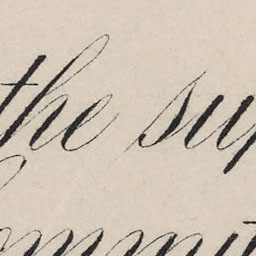 the sup
ommit